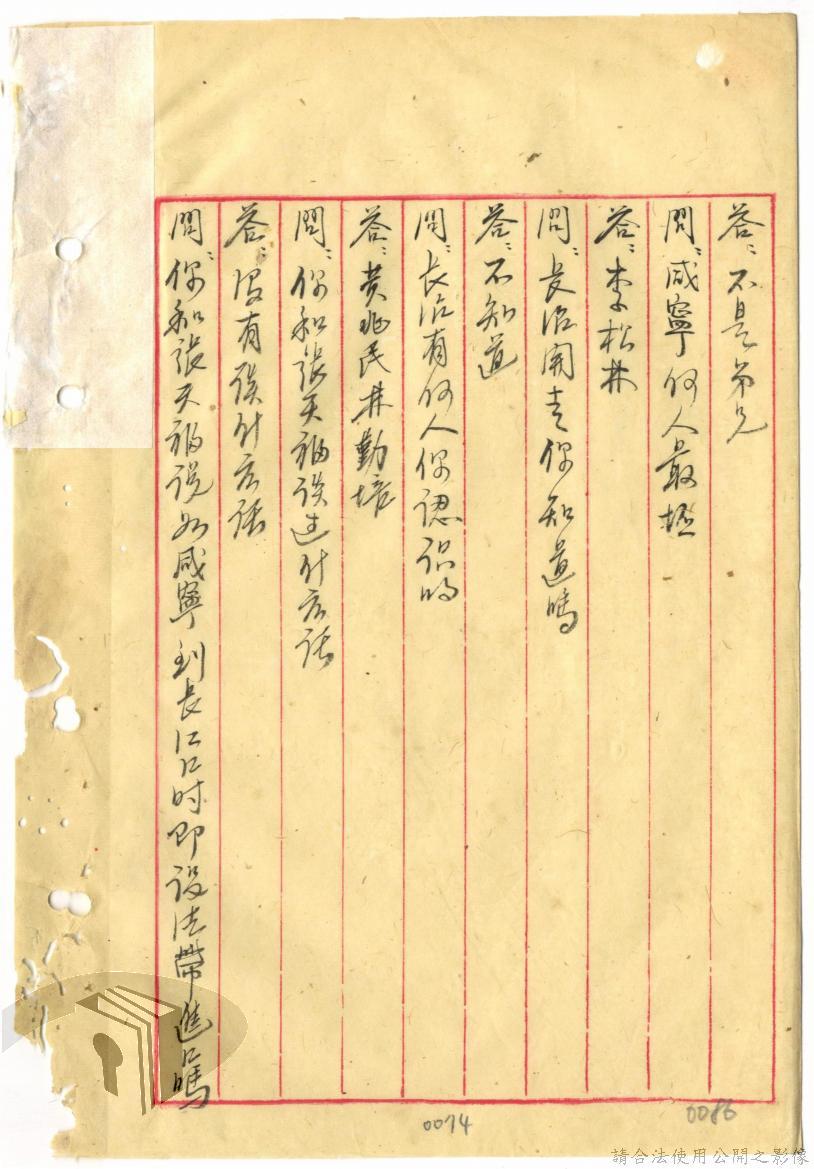 答：不是弟兄
問：咸寧何人最壞
答：李松林
問：長治開走你知道嗎
答：不知道
問：长治有何人你認识的
答：黃兆民林勤培
問：你和張天福談过什広话
答：沒有談什広话
問：你和張天福说如咸寧到長江口时即設法帶進口嗎
0074
0086
請合法使用公開之影像